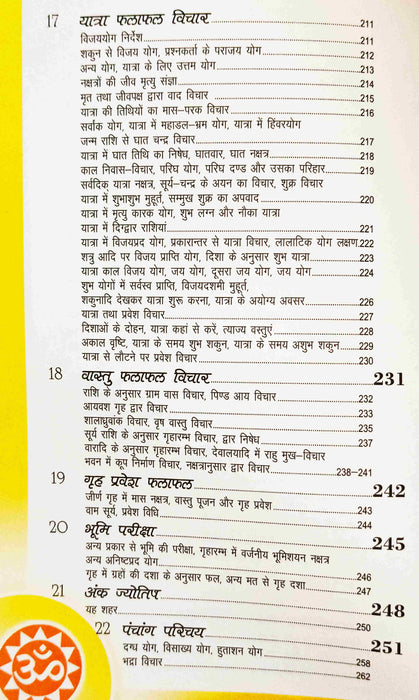 17 यात्रा फलाफल विचार 211
विजययोग निर्देश 211
शकुन से विजय योग, प्रश्नकर्ता के पराजय योग 212
अन्य योग, यात्रा के लिए उत्तम योग 213
नक्षत्रों की जीव मृत्यु संज्ञा 214
मृत तथा जीवपक्ष द्वारा वाद विचार 215
यात्रा की तिथियों का मास-परक विचार 216
सर्वाक योग, यात्रा में महाडल-भ्रम योग, यात्रा में हिंवरयोग
जन्म राशि से घात चन्द्र विचार 217
यात्रा में घात तिथि का निषेध, घातवार, घात नक्षत्र 218
काल निवास-विचार, परिघ योग, परिघ दण्ड और उसका परिहार 219
सर्वदिक् यात्रा नक्षत्र, सूर्य-चन्द्र के अयन का विचार, शुक्र विचार
यात्रा में शुभाशुभ मुहूर्त, सम्मुख शुक्र का अपवाद 220
यात्रा में मृत्यु कारक योग, शुभ लग्न और नौका यात्रा
यात्रा में दिग्द्वार राशियां 221
यात्रा में विजयप्रद योग, प्रकारान्तर से यात्रा विचार, लालाटिक योग लक्षण 222
शत्रु आदि पर विजय प्राप्ति योग, दिशा के अनुसार शुभ यात्रा 223
यात्रा काल विजय योग, जय योग, दूसरा जय योग, जय योग 224
शुभ योगों में सर्वस्व प्राप्ति, विजयदशमी मुहूर्त,
शकुनादि देखकर यात्रा शुरू करना, यात्रा के अयोग्य अवसर 226
यात्रा तथा प्रवेश विचार 227
दिशाओं के दोहन, यात्रा कहां से करें, त्याज्य वस्तुएं 228
अकाल वृष्टि, यात्रा के समय शुभ शकुन, यात्रा के समय अशुभ शकुन 229
यात्रा से लौटने पर प्रवेश विचार 230
18 वास्तु फलाफल विचार 231
राशि के अनुसार ग्राम वास विचार, पिण्ड आय विचार 232
आयवश गृह द्वार विचार 233
शालाध्रुवांक विचार, वृष वास्तु विचार 235
सूर्य राशि के अनुसार गृहारम्भ विचार, द्वार निषेध 237
वारादि के अनुसार गृहारम्भ विचार, देवालयादि में राहु मुख-विचार
भवन में कूप निर्माण विचार, नक्षत्रानुसार द्वार विचार 238-241
19 गृह प्रवेश फलाफल 242
जीर्ण गृह में मास नक्षत्र, वास्तु पूजन और गृह प्रवेश 243
वाम सूर्य, प्रवेश विधि 244
20 भूमि परीक्षा 245
अन्य प्रकार से भूमि की परीक्षा, गृहारम्भ में वर्जनीय भूमिशयन नक्षत्र
अन्य अनिष्टप्रद योग 246
गृह में ग्रहों की दशा के अनुसार फल, अन्य मत से गृह दशा 247
21 अंक ज्योतिष 248
यह शहर 250
22 पंचांग परिचय 251
दग्ध योग, विसाख्य योग, हुताशन योग 258
भद्रा विचार 262